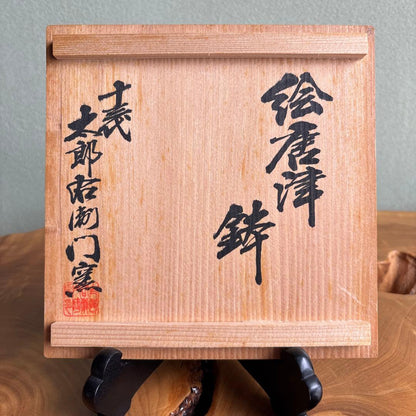 絵唐津
鉢
十三代
太郎右衛門窯